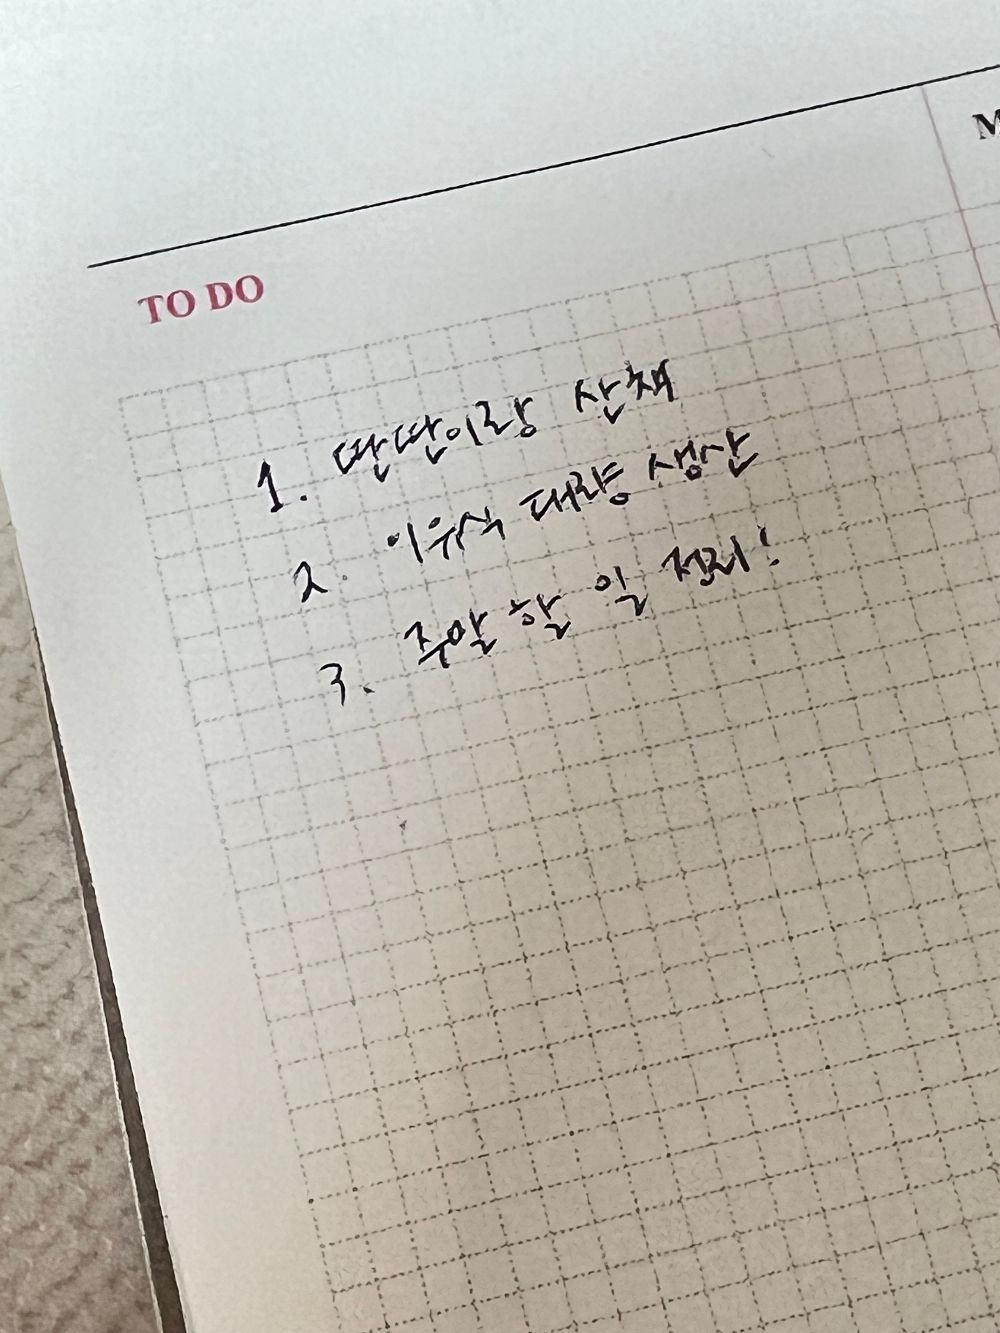 M
TO DO
1. 딴딴이랑 산책
2. 이유식 대량 생산
3. 주말 할 일 정리!